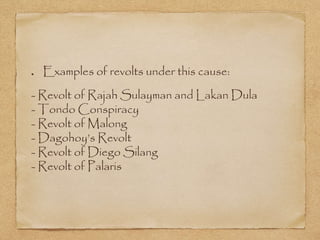 . Examples of revolts under this cause:
- Revolt of Rajah Sulayman and Lakan Dula
- Tondo Conspiracy
- Revolt of Malong
- Dagohoy's Revolt
- Revolt of Diego Silang
- Revolt of Palaris